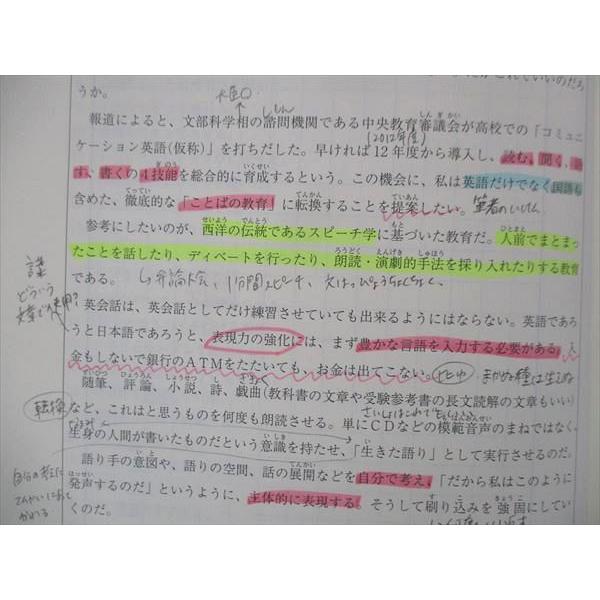 うか。
報道によると、文部科学相の諮問機関である中央教育審議会が高校での「コミュニ
ケーション英語(仮称)」を打ちだした。早ければ12年度から導入し、読む、聞く、
す、書くの4技能を総合的に育成するという。この機会に、私は英語だけでなく国語も
含めた、徹底的な「ことばの教育」に転換することを提案したい。
参考にしたいのが、西洋の伝統であるスピーチ学に基づいた教育だ。人前でまとまっ
たことを話したり、ディベートを行ったり、朗読・演劇的手法を採り入れたりする教育
である。
英会話は、英会話としてだけ練習させていても出来るようにはならない。英語であろ
うと日本語であろうと、表現力の強化には、まず豊かな言語を入力する必要がある。
金もしないで銀行のATMをたたいても、お金は出てこない。
随筆、評論、小説、詩、戯曲(教科書の文章や受験参考書の長文読解の文章もいい)
など、これはと思うものを何度も朗読させる。単にCDなどの模範音声のまねではなく、
生身の人間が書いたものだという意識を持たせ、「生きた語り」として実行させるのだ。
語り手の意図や、語りの空間、話の展開などを自分で考え、「だから私はこのように
発声するのだ」というように、主体的に表現する。そうして刷り込みを強固にしてい
くのだ。
(2012年度)
筆者のいけん
弁論大会、1分間スピーチ
謎
どういう
転換
自分の考えに